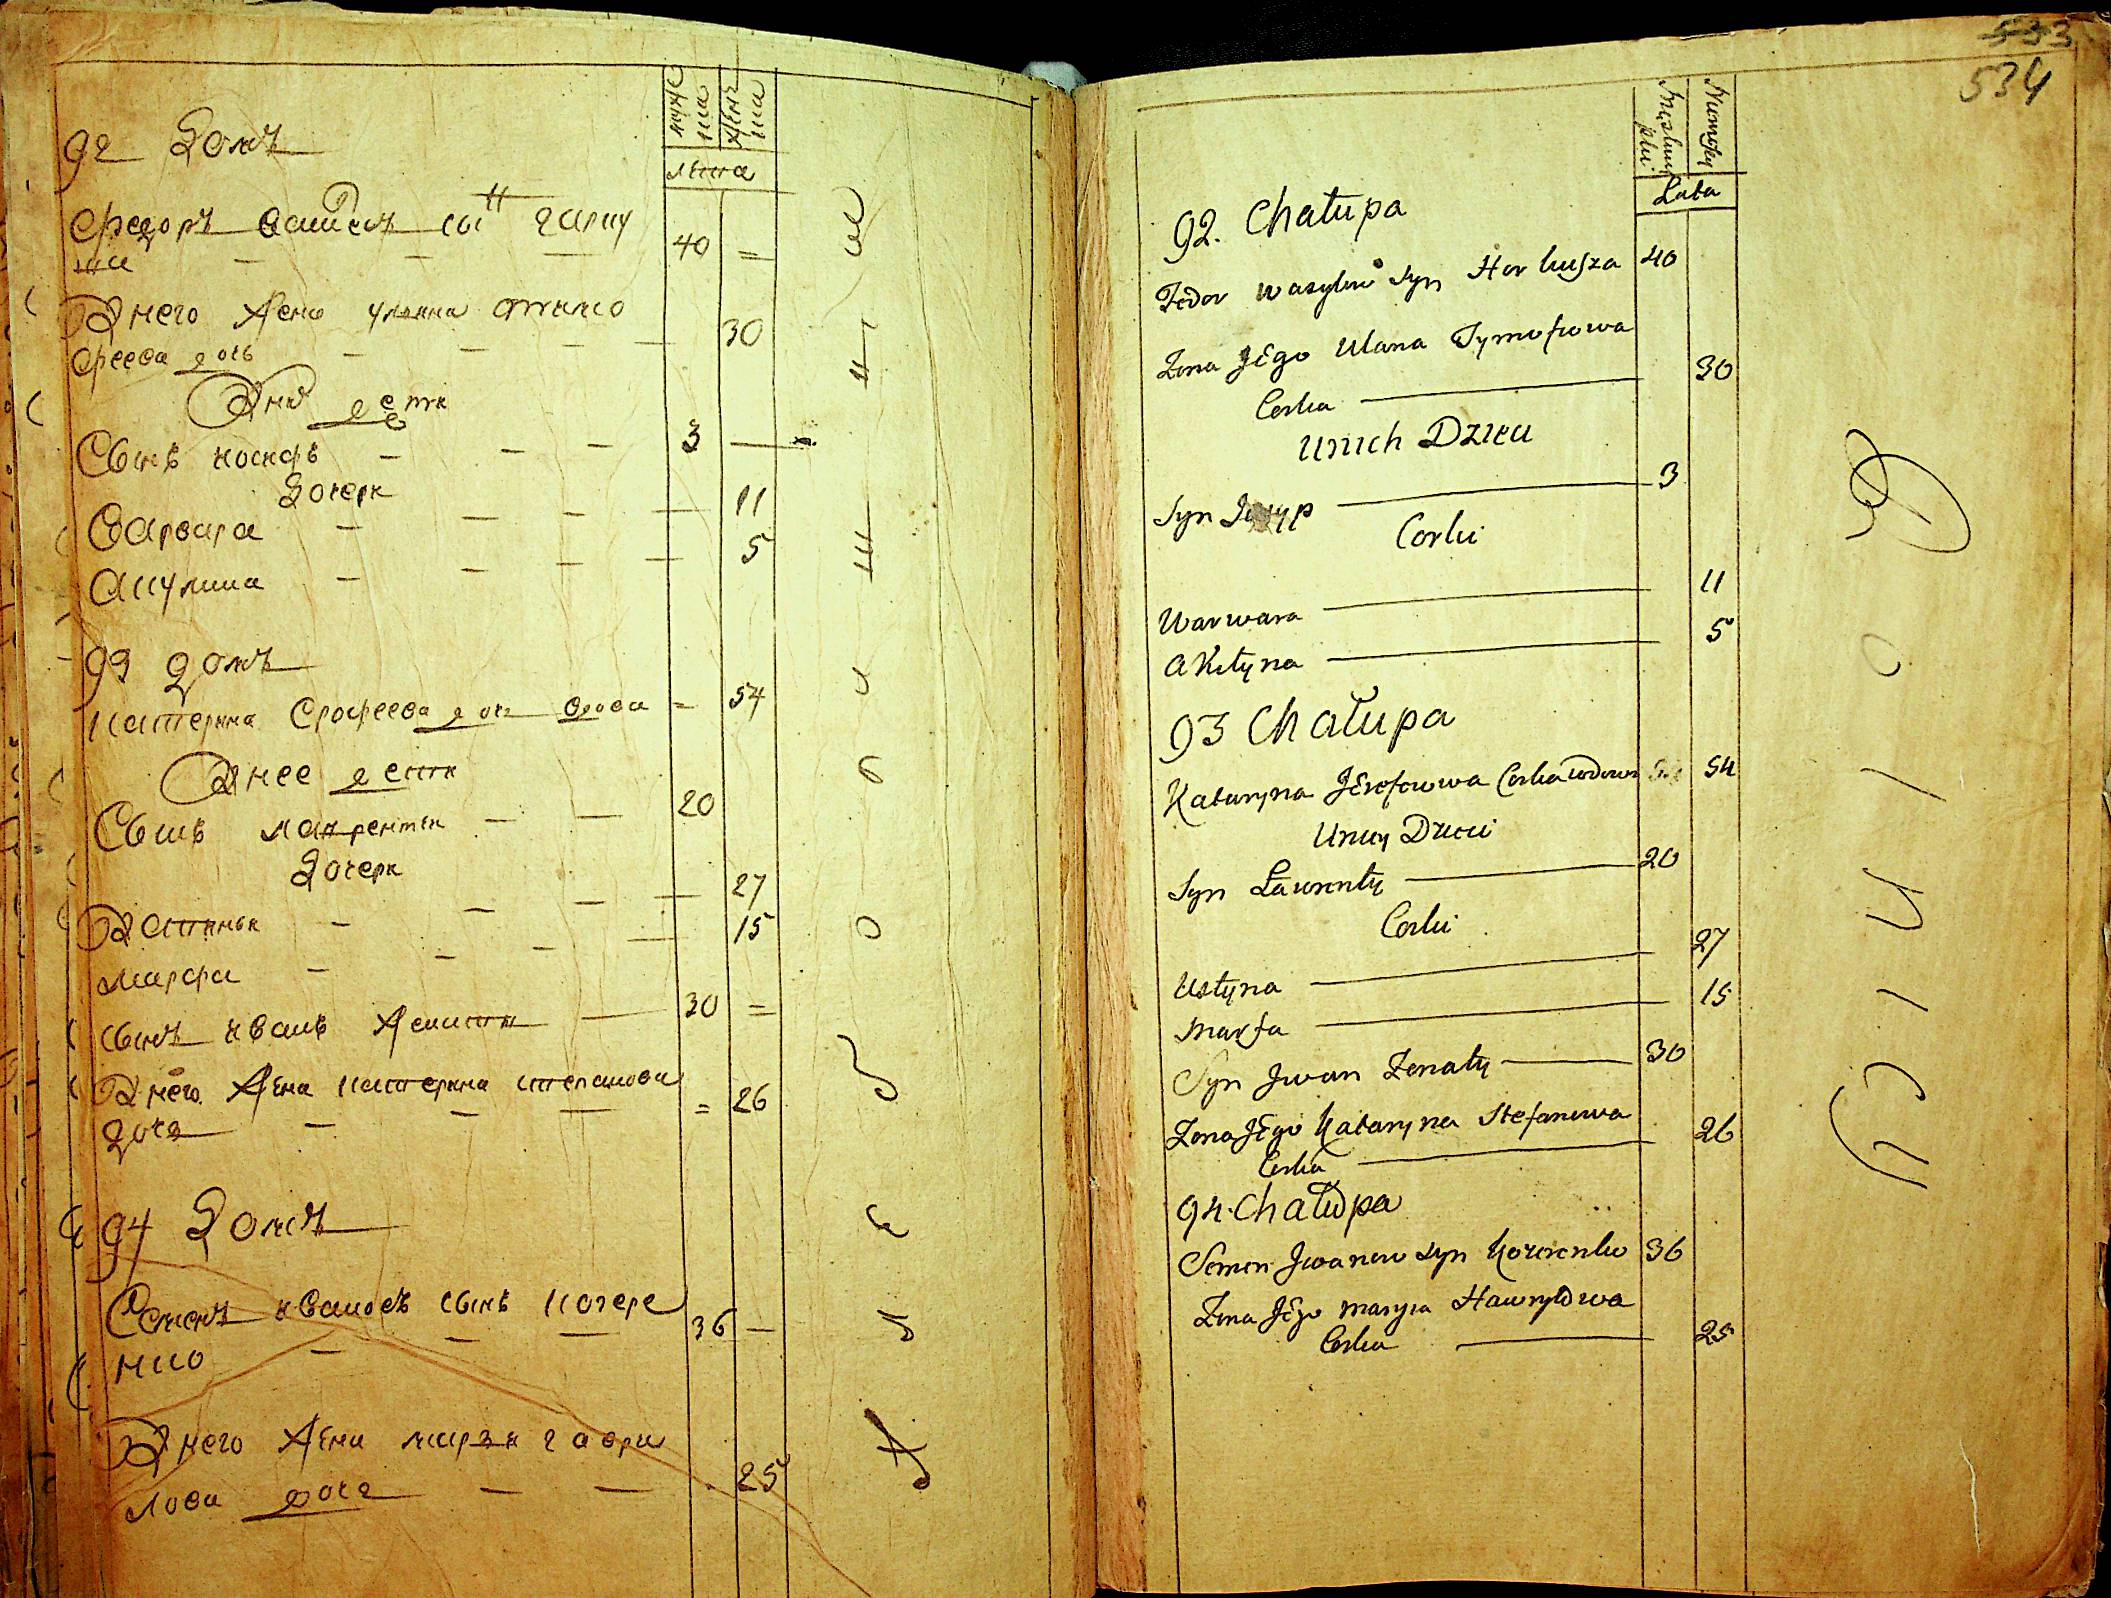 92 Домъ
муже
ска
женъ
ска
лѣта
Федоръ васи҃левъ сынъ гарку
ша — — — 40 =
У него жена улияна тимо
феева дочь — — — — 30
У них дети
Сынъ иосифъ — — — 3 —
Дочери
Варвара — — — — 11
Акулина — — — — 5
93 Домъ
Катерина Ерофеева дочь вдова = 54
У нее дети
Сынъ лаврентеи — — — 20
Дочери
Устинья — — — — 27
Марфа — — — — 15
Сынъ иванъ женатъ — 30 =
У него жена катерина степанова
дочь — — — = 26
94 Домъ
Семенъ ивановъ сынъ козере
нко — — — 36 —
У него жена мария гаври
лова дочь — — 25
533
534
Lata
92. Chałupa
Fedor Wasylow Syn Harkusza 40
Zona Jego Ulana Tymofiowa
Corka — 30
Unich Dzieci
Syn — 3
Corki
Warwara — 11
Akulyna — 5
93 Chałupa
Kataryna Jerofeowa Corka wdowa 54
Uniey Dzieci
Syn Ławrenty — 20
Corki
Ustyna — 27
Marfa — 15
Syn Jwan Zonaty — 30
Zona Jego Kataryna Stefanowa
Corka — 26
94. Chałupa
Semen Jwanow Syn Kozerenko 36
Zona Jego Marya Hawryłowa
Corka — 25